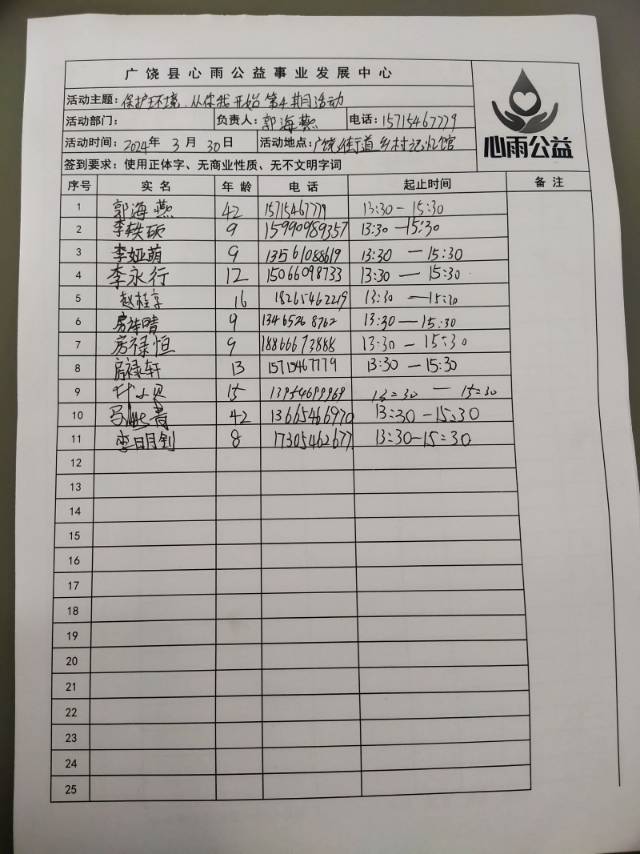 广饶县心雨公益事业发展中心
活动主题: 保护环境、从你我开始 第4期活动
活动部门: 负责人: 郭海燕 电话: 15715467779
活动时间: 2024年 3月 30日 活动地点: 广饶街道乡村记忆馆
签到要求: 使用正体字、无商业性质、无不文明字词
心雨公益
序号 实名 年龄 电话 起止时间 备注
1 郭海燕 42 15715467779 13:30-15:30
2 李轶硕 9 15990989357 13:30-15:30
3 李娅萌 9 13561088619 13:30-15:30
4 李永行 12 15066098733 13:30-15:30
5 赵桂享 16 18265462219 13:30-15:30
6 9 13465268762 13:30-15:30
7 房禄恒 9 18866673888 13:30-15:30
8 房禄轩 13 15715467779 13:30-15:30
9 15 13954699969 13:30-15:30
10 42 13665466970 13:30-15:30
11 李明钊 8 17305462677 13:30-15:30
12
13
14
15
16
17
18
19
20
21
22
23
24
25